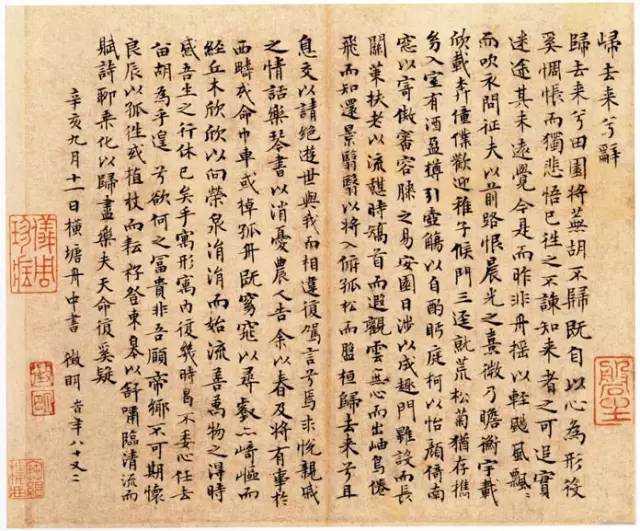 歸去来兮辭
歸去来兮田園将蕪胡不歸既自以心為形役
奚惆悵而獨悲悟已往之不諫知来者之可追實
迷途其未遠覺今是而昨非舟摇以輕颺風飄〻
而吹衣問征夫以前路恨晨光之熹微乃瞻衡宇載
欣載奔僮僕歡迎稚子候門三逕就荒松菊猶存携
幼入室有酒盈樽引壺觴以自酌眄庭柯以怡顔倚南
窓以寄傲審容膝之易安園日涉以成趣門雖設而長
關策扶老以流憩時矯首而遐觀雲無心而出岫鳥倦
飛而知還景翳翳以将入撫孤松而盤桓歸去来兮且
息交以請絶遊世與我而相違復駕言兮焉求悅親戚
之情話樂琴書以消憂農人告余以春及将有事於
西疇或命巾車或棹孤舟既窈窕以尋壑亦崎嶇而
經丘木欣欣以向榮泉涓涓而始流善萬物之得時
感吾生之行休已矣乎寓形寓内復幾時曷不委心任去
留胡為乎遑〻兮欲何之富貴非吾願帝鄉不可期懷
良辰以孤往或植杖而耘耔登東皋以舒嘯臨清流而
賦詩聊乘化以歸盡樂夫天命復奚疑
辛亥九月十一日橫塘舟中書 徵明 時年八十又二
儀周珍藏